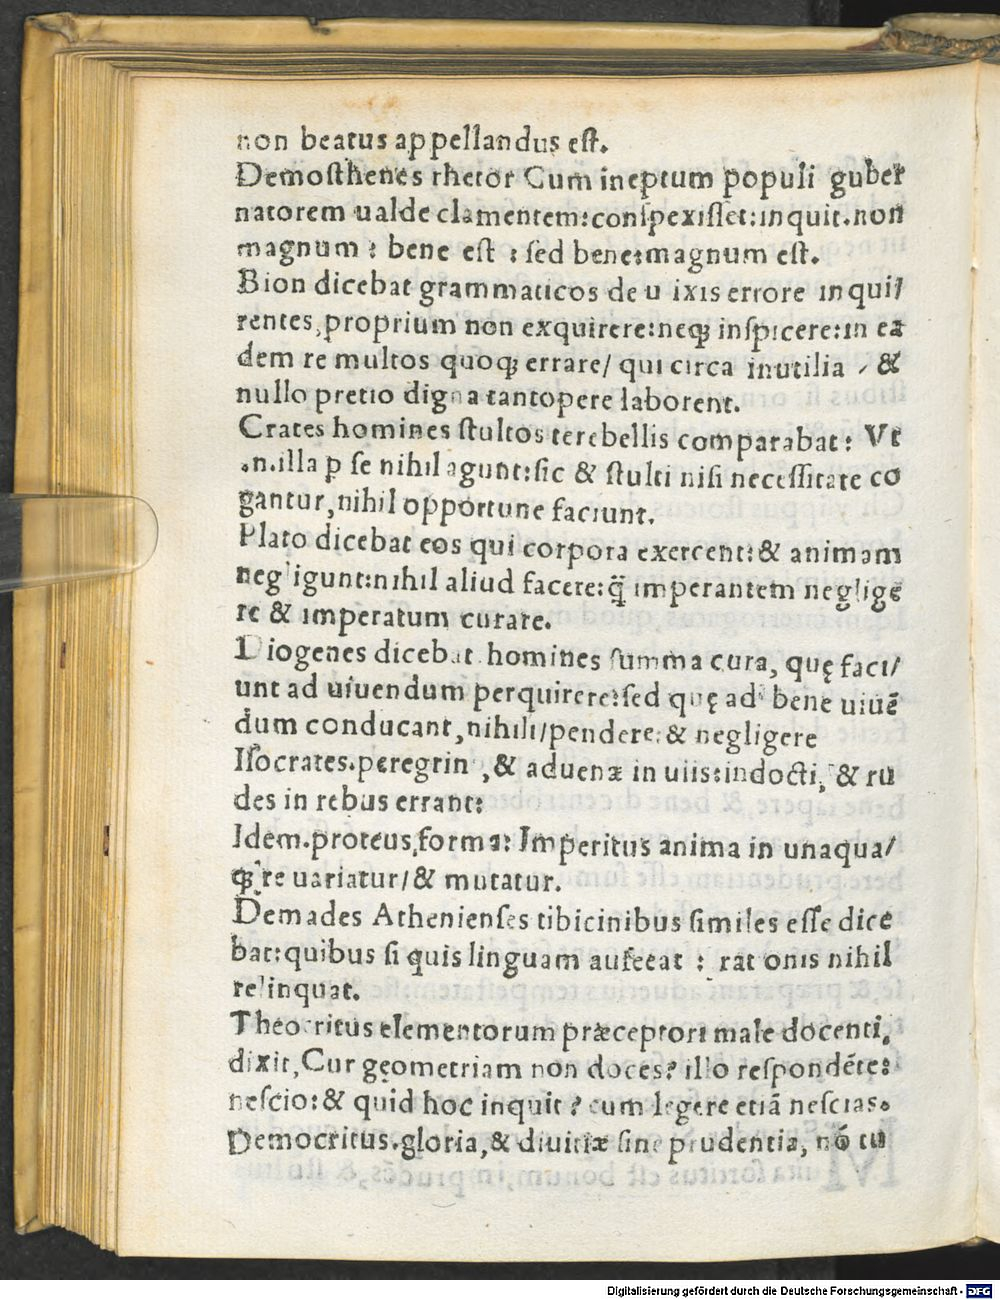 non beatus appellandus est.
Demosthenes rhetor Cum ineptum populi guber
natorem ualde clamentem:conspexisset:inquit.non
magnum : bene est : sed bene:magnum est.
Bion dicebat grammaticos de u ixis errore inqui/
rentes,proprium non exquirere:neqꝫ inspicere:in ea
dem re multos quoqꝫ errare/ qui circa inutilia / &
nullo pretio digna tantopere laborent.
Crates homines stultos terebellis comparabat: Vt
.n.illa ꝑ se nihil agunt:sic & stulti nisi necessitate co
gantur,nihil opportune faciunt.
Plato dicebat eos qui corpora exercent:& animam
negligunt:nihil aliud facere:q̃ imperantem negligẽ
re & imperatum curare.
Diogenes dicebat homines summa cura, quę faci/
unt ad uiuendum perquirere:sed quę ad bene uiuẽ
dum conducant,nihili/pendere:& negligere
Isocrates.peregrin ,& aduenæ in uiis:indocti, & ru
des in rebus errant:
Idem.proteus,forma: Imperitus anima in unaqua/
qꝫ re uariatur/& mutatur.
Demades Athenienses tibicinibus similes esse dice
bat:quibus si quis linguam auferat : rationis nihil
relinquat.
Theocritus elementorum præceptori male docenti,
dixit,Cur geometriam non doces? illo respondẽte:
nescio:& quid hoc inquit ? cum legere etiã nescias.
Democritus.gloria,& diuitiæ sine prudentia, nõ tu
Digitalisierung gefördert durch die Deutsche Forschungsgemeinschaft - DFG